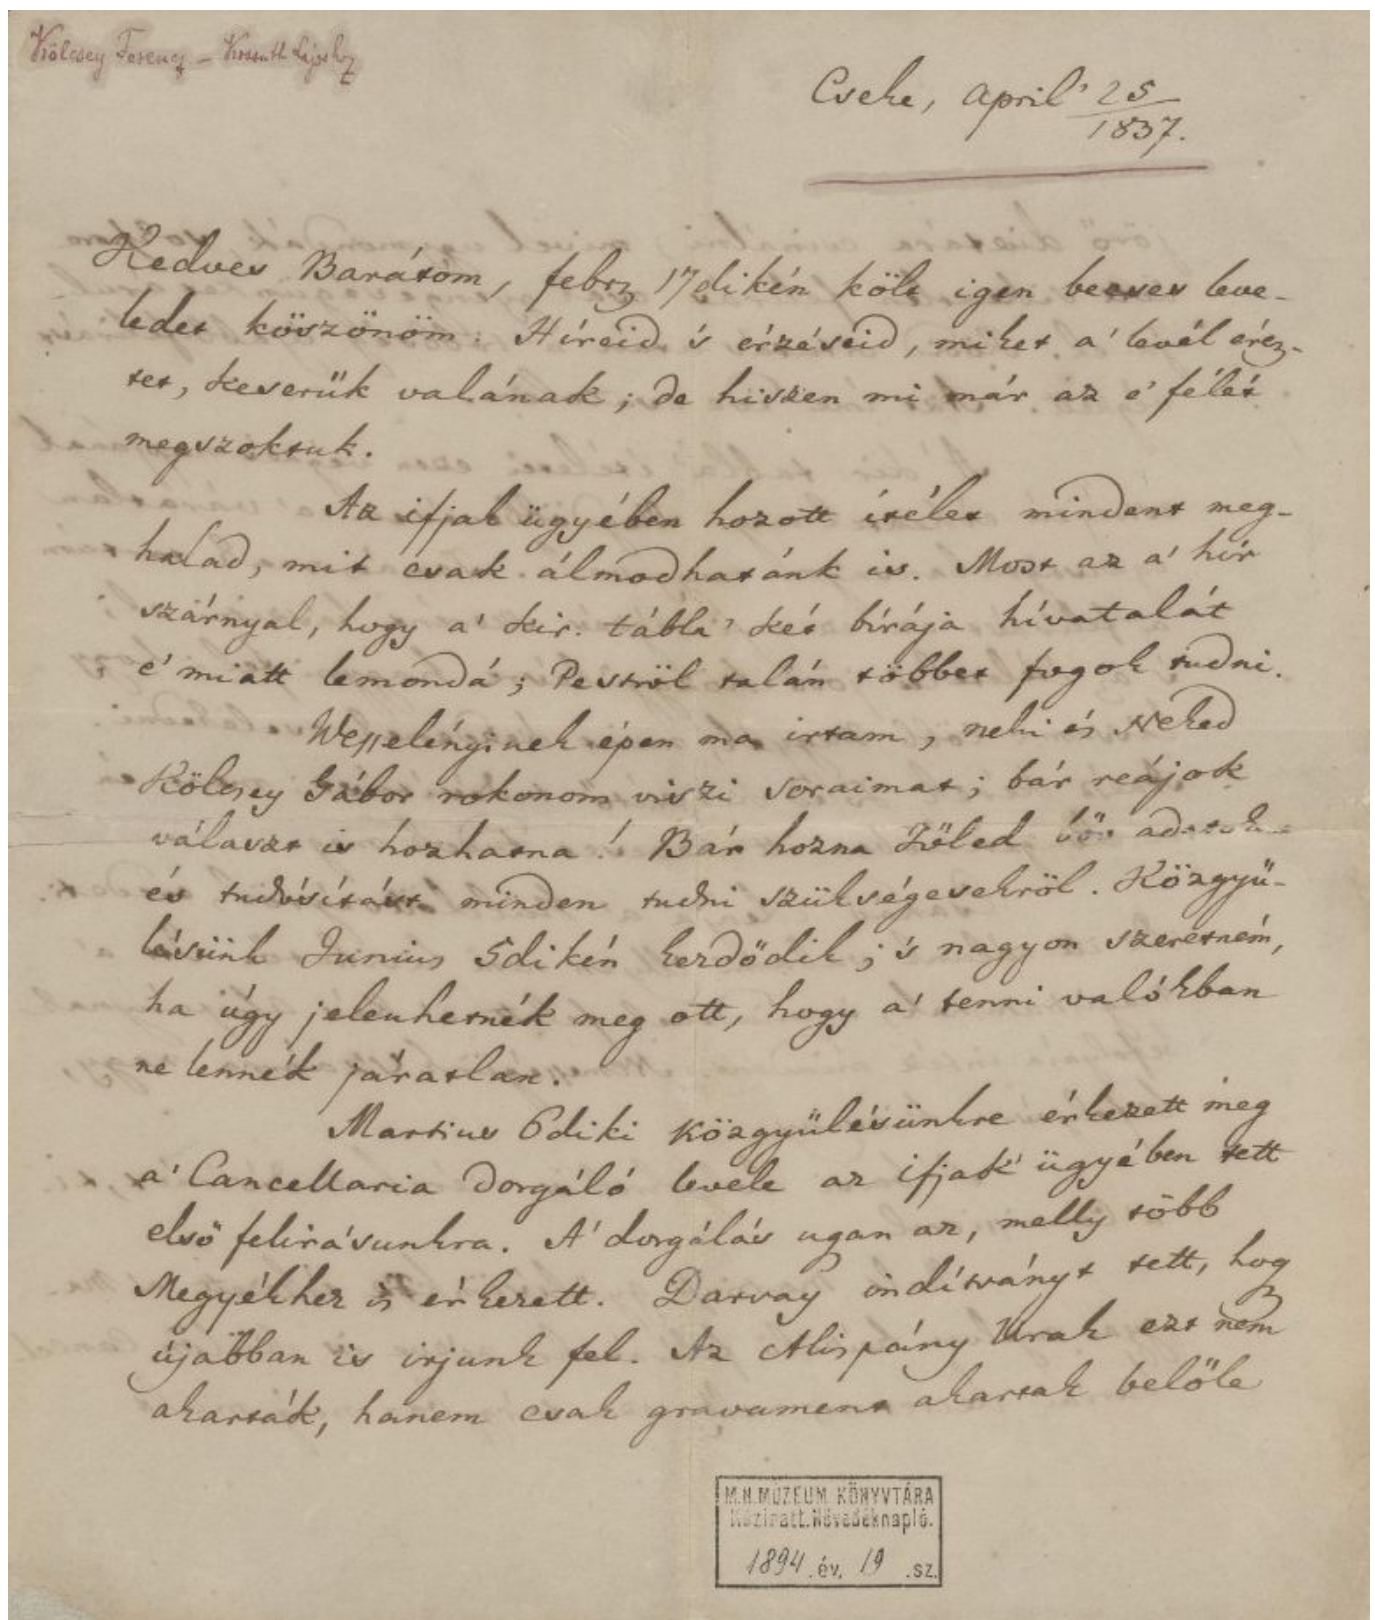 Kölcsey Ferencz – Kossuth Lajoshoz
Cseke, april' 25
1837.
Kedves Barátom, febr. 17dikén költ igen becses leve-
ledet köszönöm. Híreid 's érzéseid, miket a' levél érez-
tet, keserük valának; de hiszen mi már az e' félét
megszoktuk.
Az ifjak ügyében hozott ítélet mindent meg-
halad, mit csak álmodhatánk is. Most az a' hír
szárnyal, hogy a' kir. tábla' két bírája hívatalát
e' miatt lemondá; Pestről talán többet fogok tudni.
Wesselényinek épen ma irtam, neki és Neked
Kölcsey Gábor rokonom viszi soraimat; bár reájok
választ is hozhatna! Bár hozna Tőled bőv adatok
és tudósítást minden tudni szükségesekről. Közgyü-
lésünk Junius 5dikén kezdődik; 's nagyon szeretném,
ha úgy jelenhetnék meg ott, hogy a' tenni valókban
ne lennék járatlan.
Martius 6diki közgyülésünkre érkezett meg
a' Cancellaria dorgáló levele az ifjak' ügyében tett
első felirásunkra. A' dorgálás ugan az, melly több
Megyékhez is érkezett. Darvay indítványt tett, hogy
újabban is irjunk fel. Az Alispány Urak ezt nem
akarták, hanem csak gravament akartak belőle
M.N.MÚZEUM KÖNYVTÁRA
Kéziratt. Növedéknapló.
1894 év. 19 .sz.